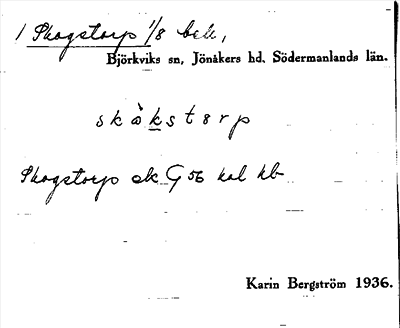 1 Skogstorp 1/8 bebe,
Björkviks sn, Jönåkers hd, Södermanlands län.
skòkstɘrp
Skogstorp ek G 56 kal kb
Karin Bergström 1936.